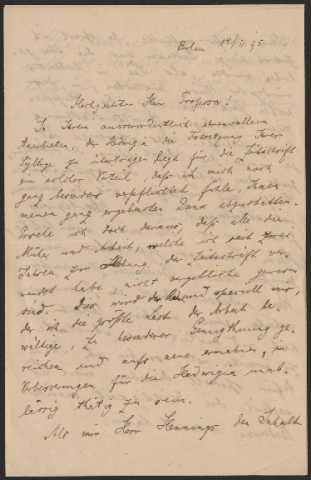 Berlin 14/II. 95
Hochgeehrter Herr Professor!
In Ihrem ausserordentlich ehrenvollem
Anerbieten, der Hedwigia die Fortsetzung Ihrer
Sylloge zu übertragen liegt für die Zeitschrift
ein solcher Vorteil, daß ich mich noch
ganz besonders verpflichtet fühle, Ihnen
meinen ganz ergebensten Dank abzustatten.
Ersehe ich doch daraus, daß alle die
Mühe und Arbeit, welche ich seit zwei
Jahren zur Hebung der Zeitschrift ver-
wendet habe, nicht vergebliche gewesen
sind. Das wird der und speciell mir,
der ich die größte Last der Arbeit be-
wältige, zu besonderer Genugthuung ge-
reichen und aufs neue ermahnen, in
Verbesserungen für die Hedwigia unab-
lässig thätig zu sein.
Als mir Herr Hennings den Inhalt